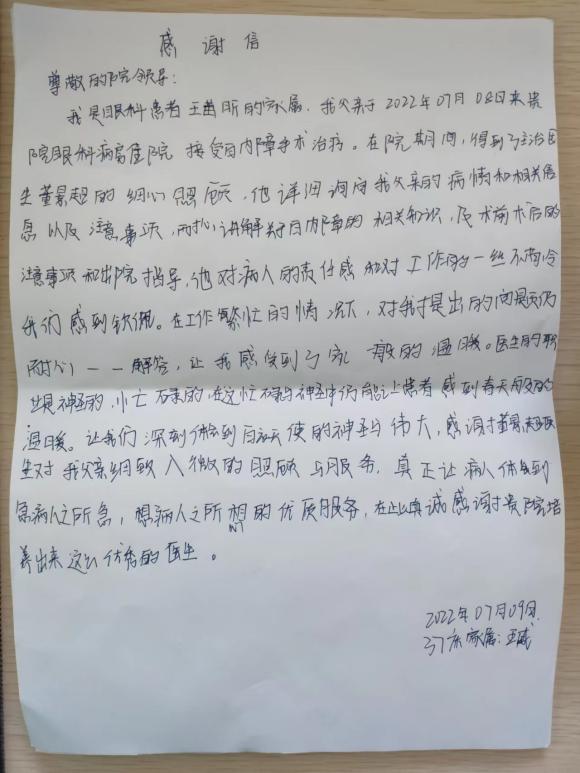 感谢信
尊敬的院领导:
我是眼科患者王 昕的家属,我父亲于2022年07月08日来贵
院眼科病房住院接受白内障手术治疗。在院期间,得到了主治医
生董景超的细心照顾,他详细询问我父亲的病情和相关信
息以及注意事项,耐心讲解关于白内障的相关知识,及术前术后的
注意事项和出院指导,他对病人的责任感和对工作的一丝不苟令
我们感到钦佩。在工作繁忙的情况下,对我提出的问题仍
耐心一一解答,让我感受到了家一般的温暖。医生的职
是神圣的,忙碌的,在这忙碌与神圣中仍能让患者感到春天般的
温暖。让我们深刻体会到白衣天使的神圣与伟大,感谢董景超医
生对我父亲细致入微的照顾与服务,真正让病人体会到
急病人之所急,想病人之所想的优质服务,在此真诚感谢贵院培
养出来这么优秀的医生。
2022年07月09日
37床家属:王